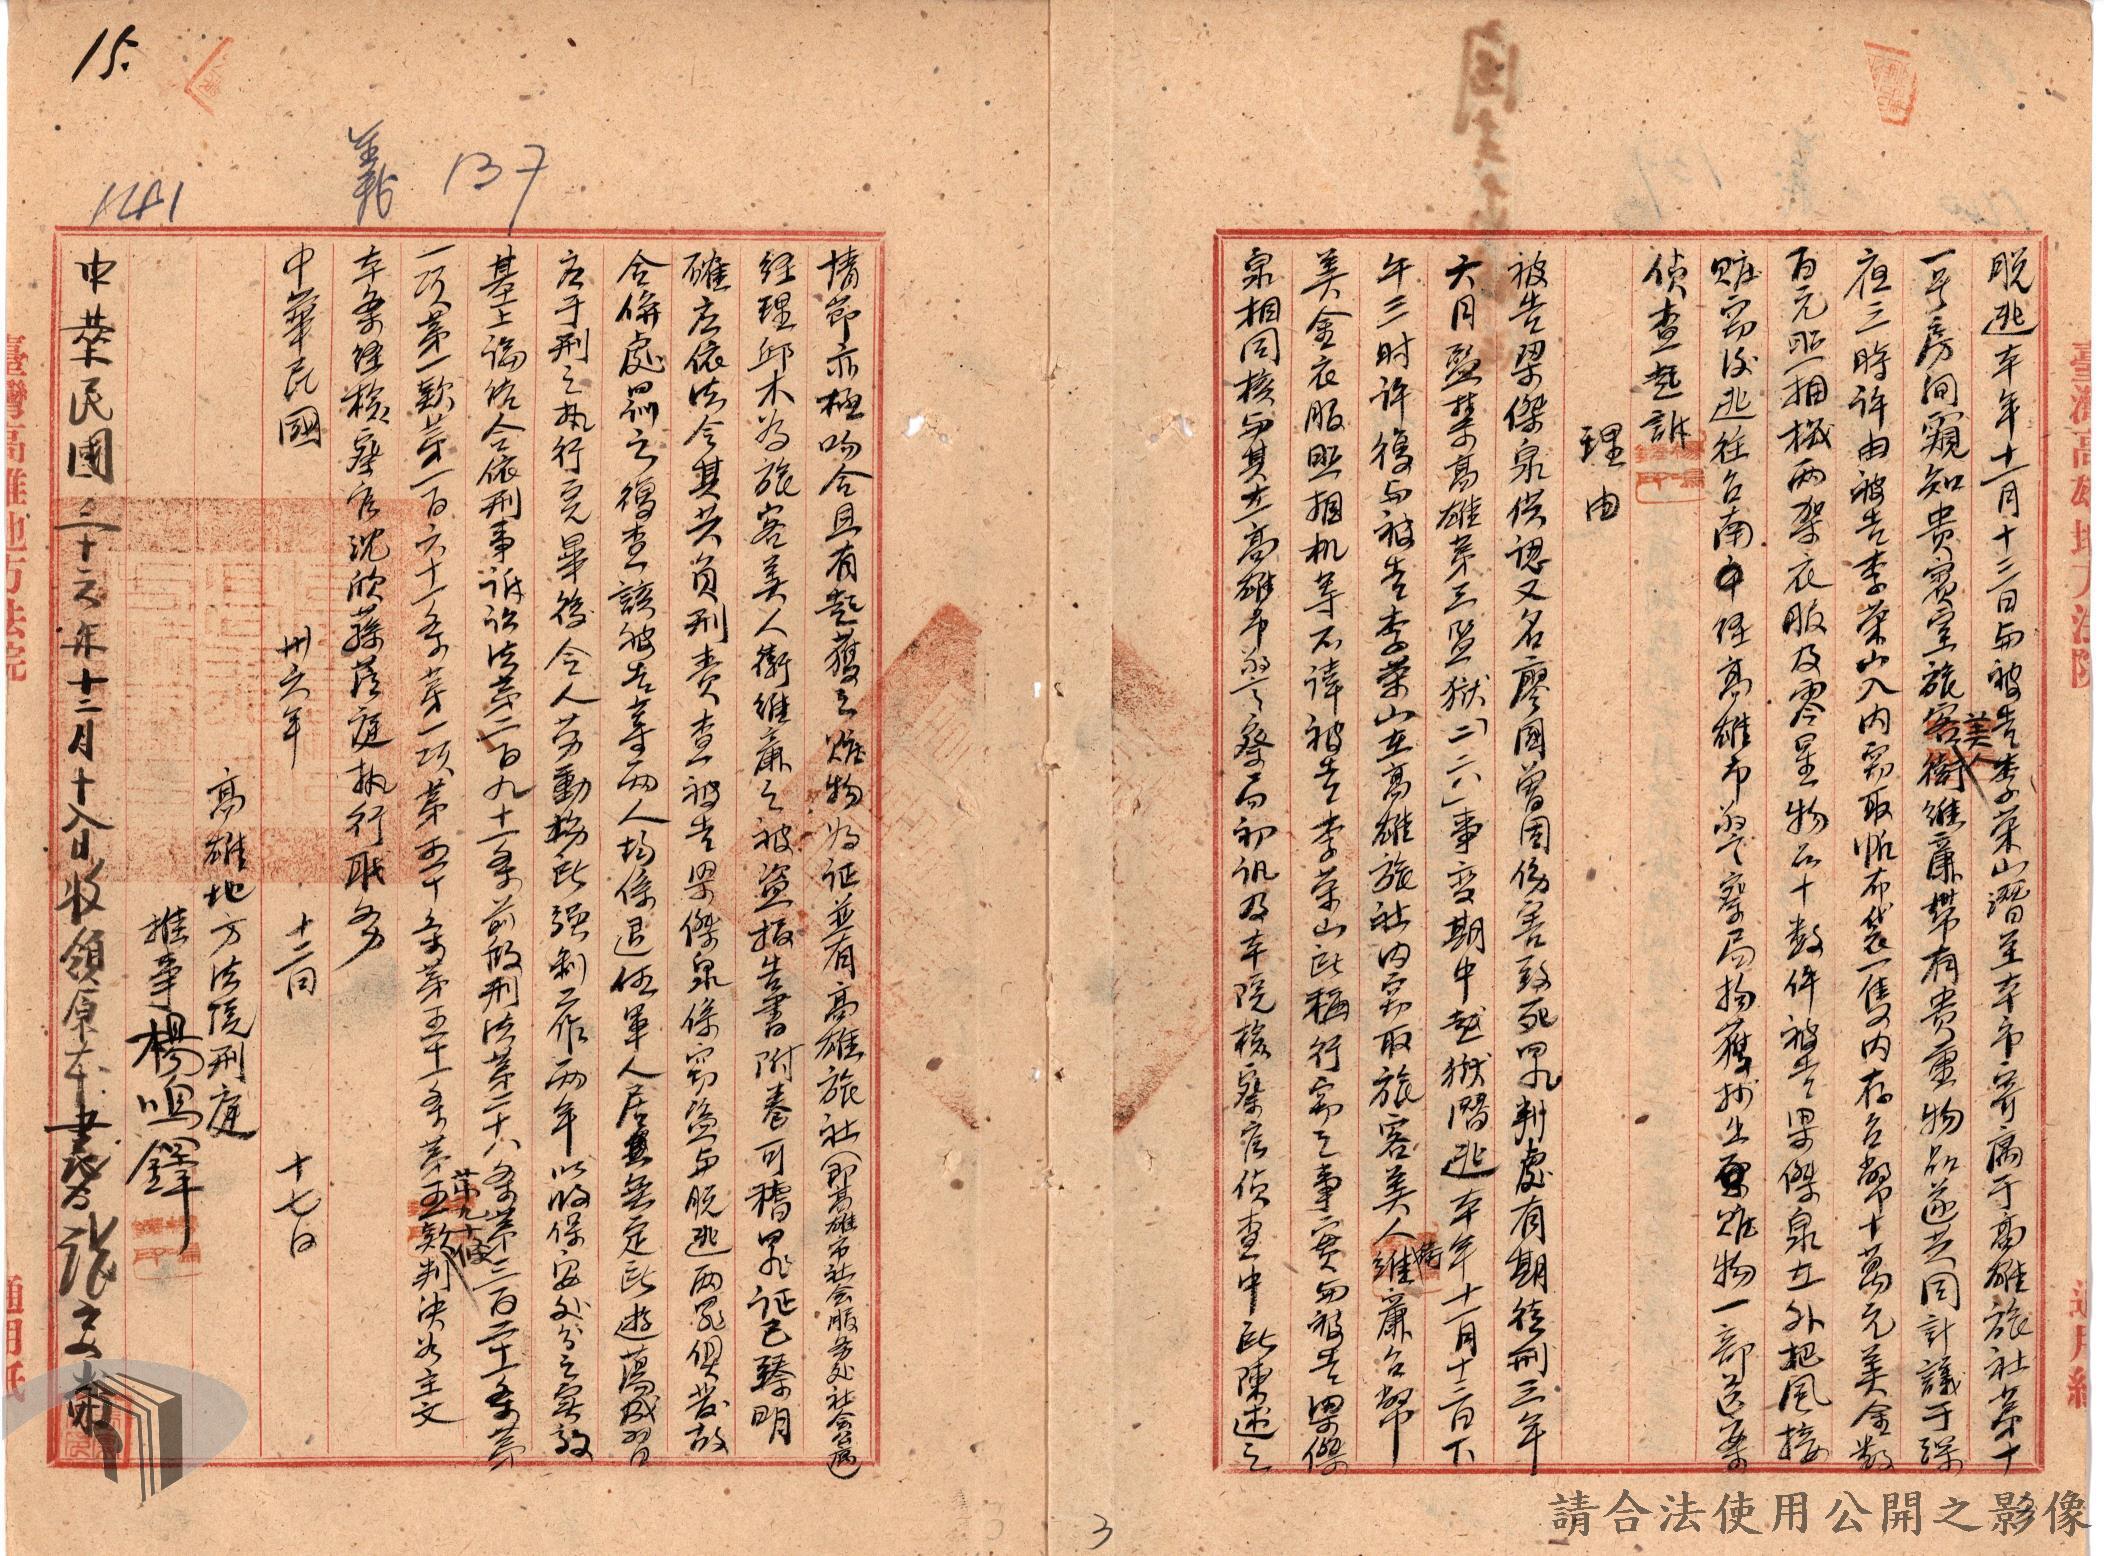 脫逃本年十一月十三日与被告李荣山潛至本市寄寓于高雄旅社第十
一号房间窺知贵賓室旅客美人衛維廉帶有贵重物品遂共同計議于深
夜三時许由被告李荣山入内窃取帆布袋一隻内存台幣十萬元美金数
百元照相机两架衣服及零星物品十数件被告梁傑泉在外把风接
贓窃後逃往台南市经高雄市警察局拘獲抄出原贓物一部送案
侦查起訴
理由
被告梁傑泉供認又名廖國曾因伤害致死罪判處有期徒刑三年
六月监禁高雄第三监狱「二二六」事变期中越狱潛逃本年十一月十三日下
午三时许復与被告李荣山在高雄旅社内窃取旅客美人衛維廉台幣
美金衣服照相机等不諱被告李荣山所稱行窃之事實与被告梁傑
泉相同核与其在高雄市警察局初讯及本院檢察官侦查中所陳述之
情節亦極吻合且有起獲之贓物为证並有高雄旅社(即高雄市社会服务处社会公寓)
经理邱木为旅客美人衛維廉之被盗报告書附卷可稽罪证已臻明
確应依法令其共負刑责查被告梁傑泉係窃盗与脫逃两罪俱发故
合併處罰之復查該被告等两人均係退伍軍人居無定所遊蕩成習
应于刑之执行完畢後令入劳動场所强制工作两年以收保安处分之实效
基上論结合依刑事诉讼法第二百九十一条前段刑法第二十八条第三百二十一条第
一项第一款第一百六十一条第一项第五十条第五十一条第五款第九十條判决如主文
本案经檢察官沈欣蓀蒞庭执行职务
中華民國 卅六年 十二月 十七日
高雄地方法院刑庭
推事楊鳴鐸
中華民國三十六年十二月十八日收領原本書記官張文肅
15.
義 137
141
3
臺灣高雄地方法院
通用紙
臺灣高雄地方法院
通用紙
請合法使用公開之影像